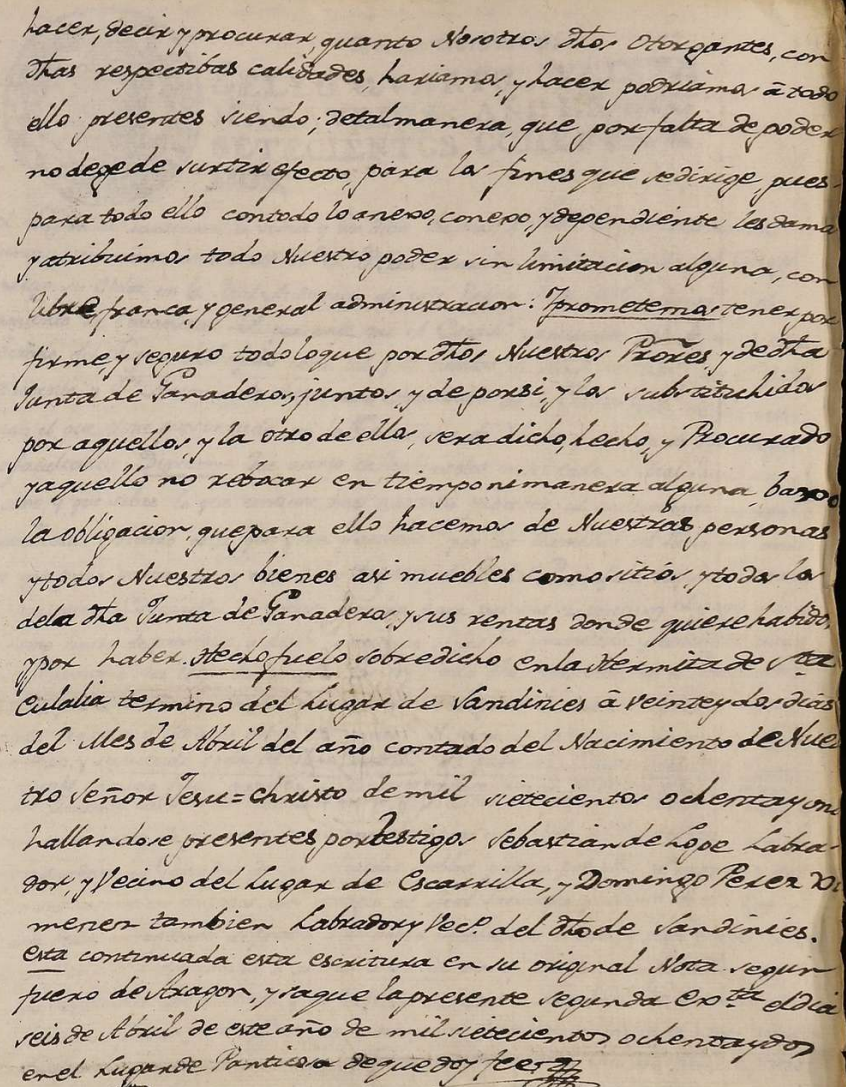 hacer, decir y procurar, quanto Nosotros dhos Otorgantes, con
dhas respectibas calidades, hariamos, y hacer podriamos â todo
ello presentes siendo; detalmanera, que por falta de poder
no dege de surtir efecto, para los fines que sedirige pues-
para todo ello contodo lo anexo, conexo, y dependiente les damo
y atribuimos todo Nuestro poder sin limitacion alguna, con
libre franca, y general administracion: Yprometemos tener por
firme, y seguro todo loque por dhos Nuestros Prores y de dha
Junta de Ganaderos, juntos y de porsi, y los substituhidos
por aquellos, y la otro de ellos, sera dicho, hecho, y Procurado
yaquello no rebocar en tiempo ni manera alguna, baxo
la obligacion, quepara ello hacemos de Nuestras personas
y todos Nuestros bienes asi muebles como sitios, y todos los
dela dha Junta de Ganaderos, y sus rentas donde quiere habidos
y por haber. Hecho fuelo sobredicho en la Hermita de Sta
Eulalia termino del Lugar de Sandinies â veinteydos dias
del Mes de Abril del año contado del Nacimiento de Nues
tro Señor Jesu=Christo de mil sietecientos ochentay uno
hallandose presentes por Testigos Sebastian de Lope Labra-
dor, y Vecino del Lugar de Escarrilla, y Domingo Perez Xi
menez tambien Labrador y Vecº. del dho de Sandinies.
esta continuada esta escritura en su original Nota segun
fuero de Aragon, y saque la presente segunda exta el dia
seis de Abril de este año de mil sietecientos ochentaydos
en el Lugar de Panticosa dequedoy fee